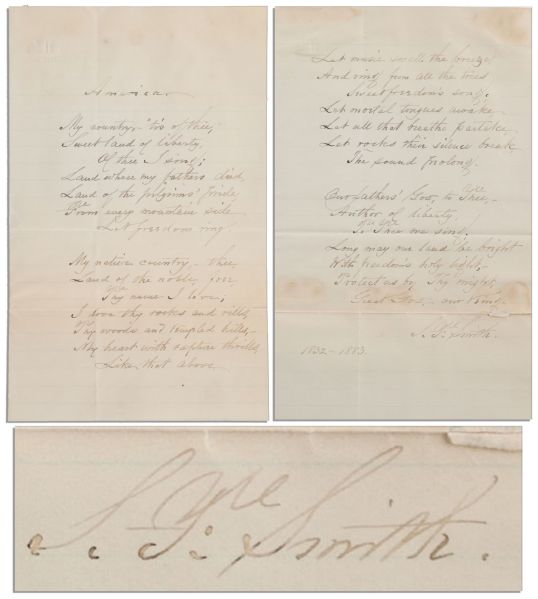 America
My country, 'tis of thee,
Sweet land of liberty,
Of thee I song;
Land where my fathers died,
Land of the pilgrims' pride
From every mountain side
Let freedom ring.
My native country – thee,
Land of the noble free
Thy name I love;
I love thy rocks and rills,
Thy woods and templed hills,–
My heart with rapture thrills,
Like that above
Let music swell the breeze,
And ring from all the trees
Sweet freedom's song.
Let mortal tongues awake
Let all that breathe partake
Let rocks their silence break
The sound prolong.
Our fathers' God, to Thee,–
Author of liberty,
To Thee we sing,
Long may our land be bright
With freedom's holy light,–
Protect us by Thy might,
Great God, – our King.
S. F. Smith.
1832–1883.
S. F. Smith.